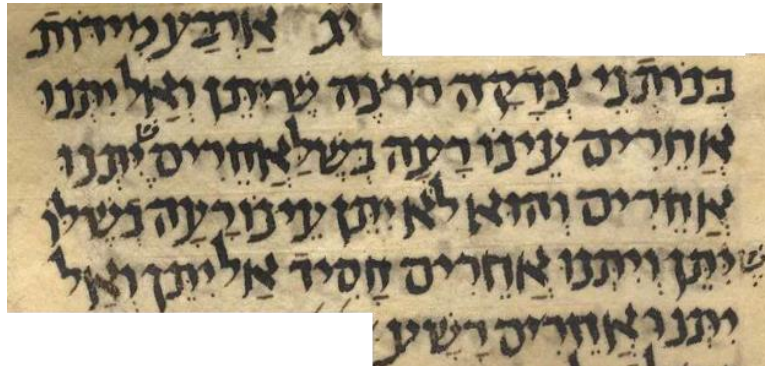 יג אַרְבַּע מִידּוֹת
בְּנוֹתְנֵי צְדָקָה רוֹצֶה שֶׁיִּתֵּן וְאַל יִתְּנוּ
אֲחֵרִים עֵינוֹ רָעָה בְּשֶׁלַּאֲחֵרִים שֶׁיִּתְּנוּ
אֲחֵרִים וְהוּא לֹא יִתֵּן עֵינוֹ רָעָה בְּשֶׁלּוֹ
שֶׁיִּתֵּן וְיִתְּנוּ אֲחֵרִים חָסִיד אַל יִתֵּן וְאַל
יִתְּנוּ אֲחֵרִים רָשָׁע